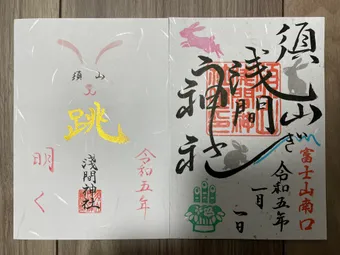 富士山南口
須山
浅間
神社
令和五年
一月
一日
令和五年
須山
跳
浅間神社
明く